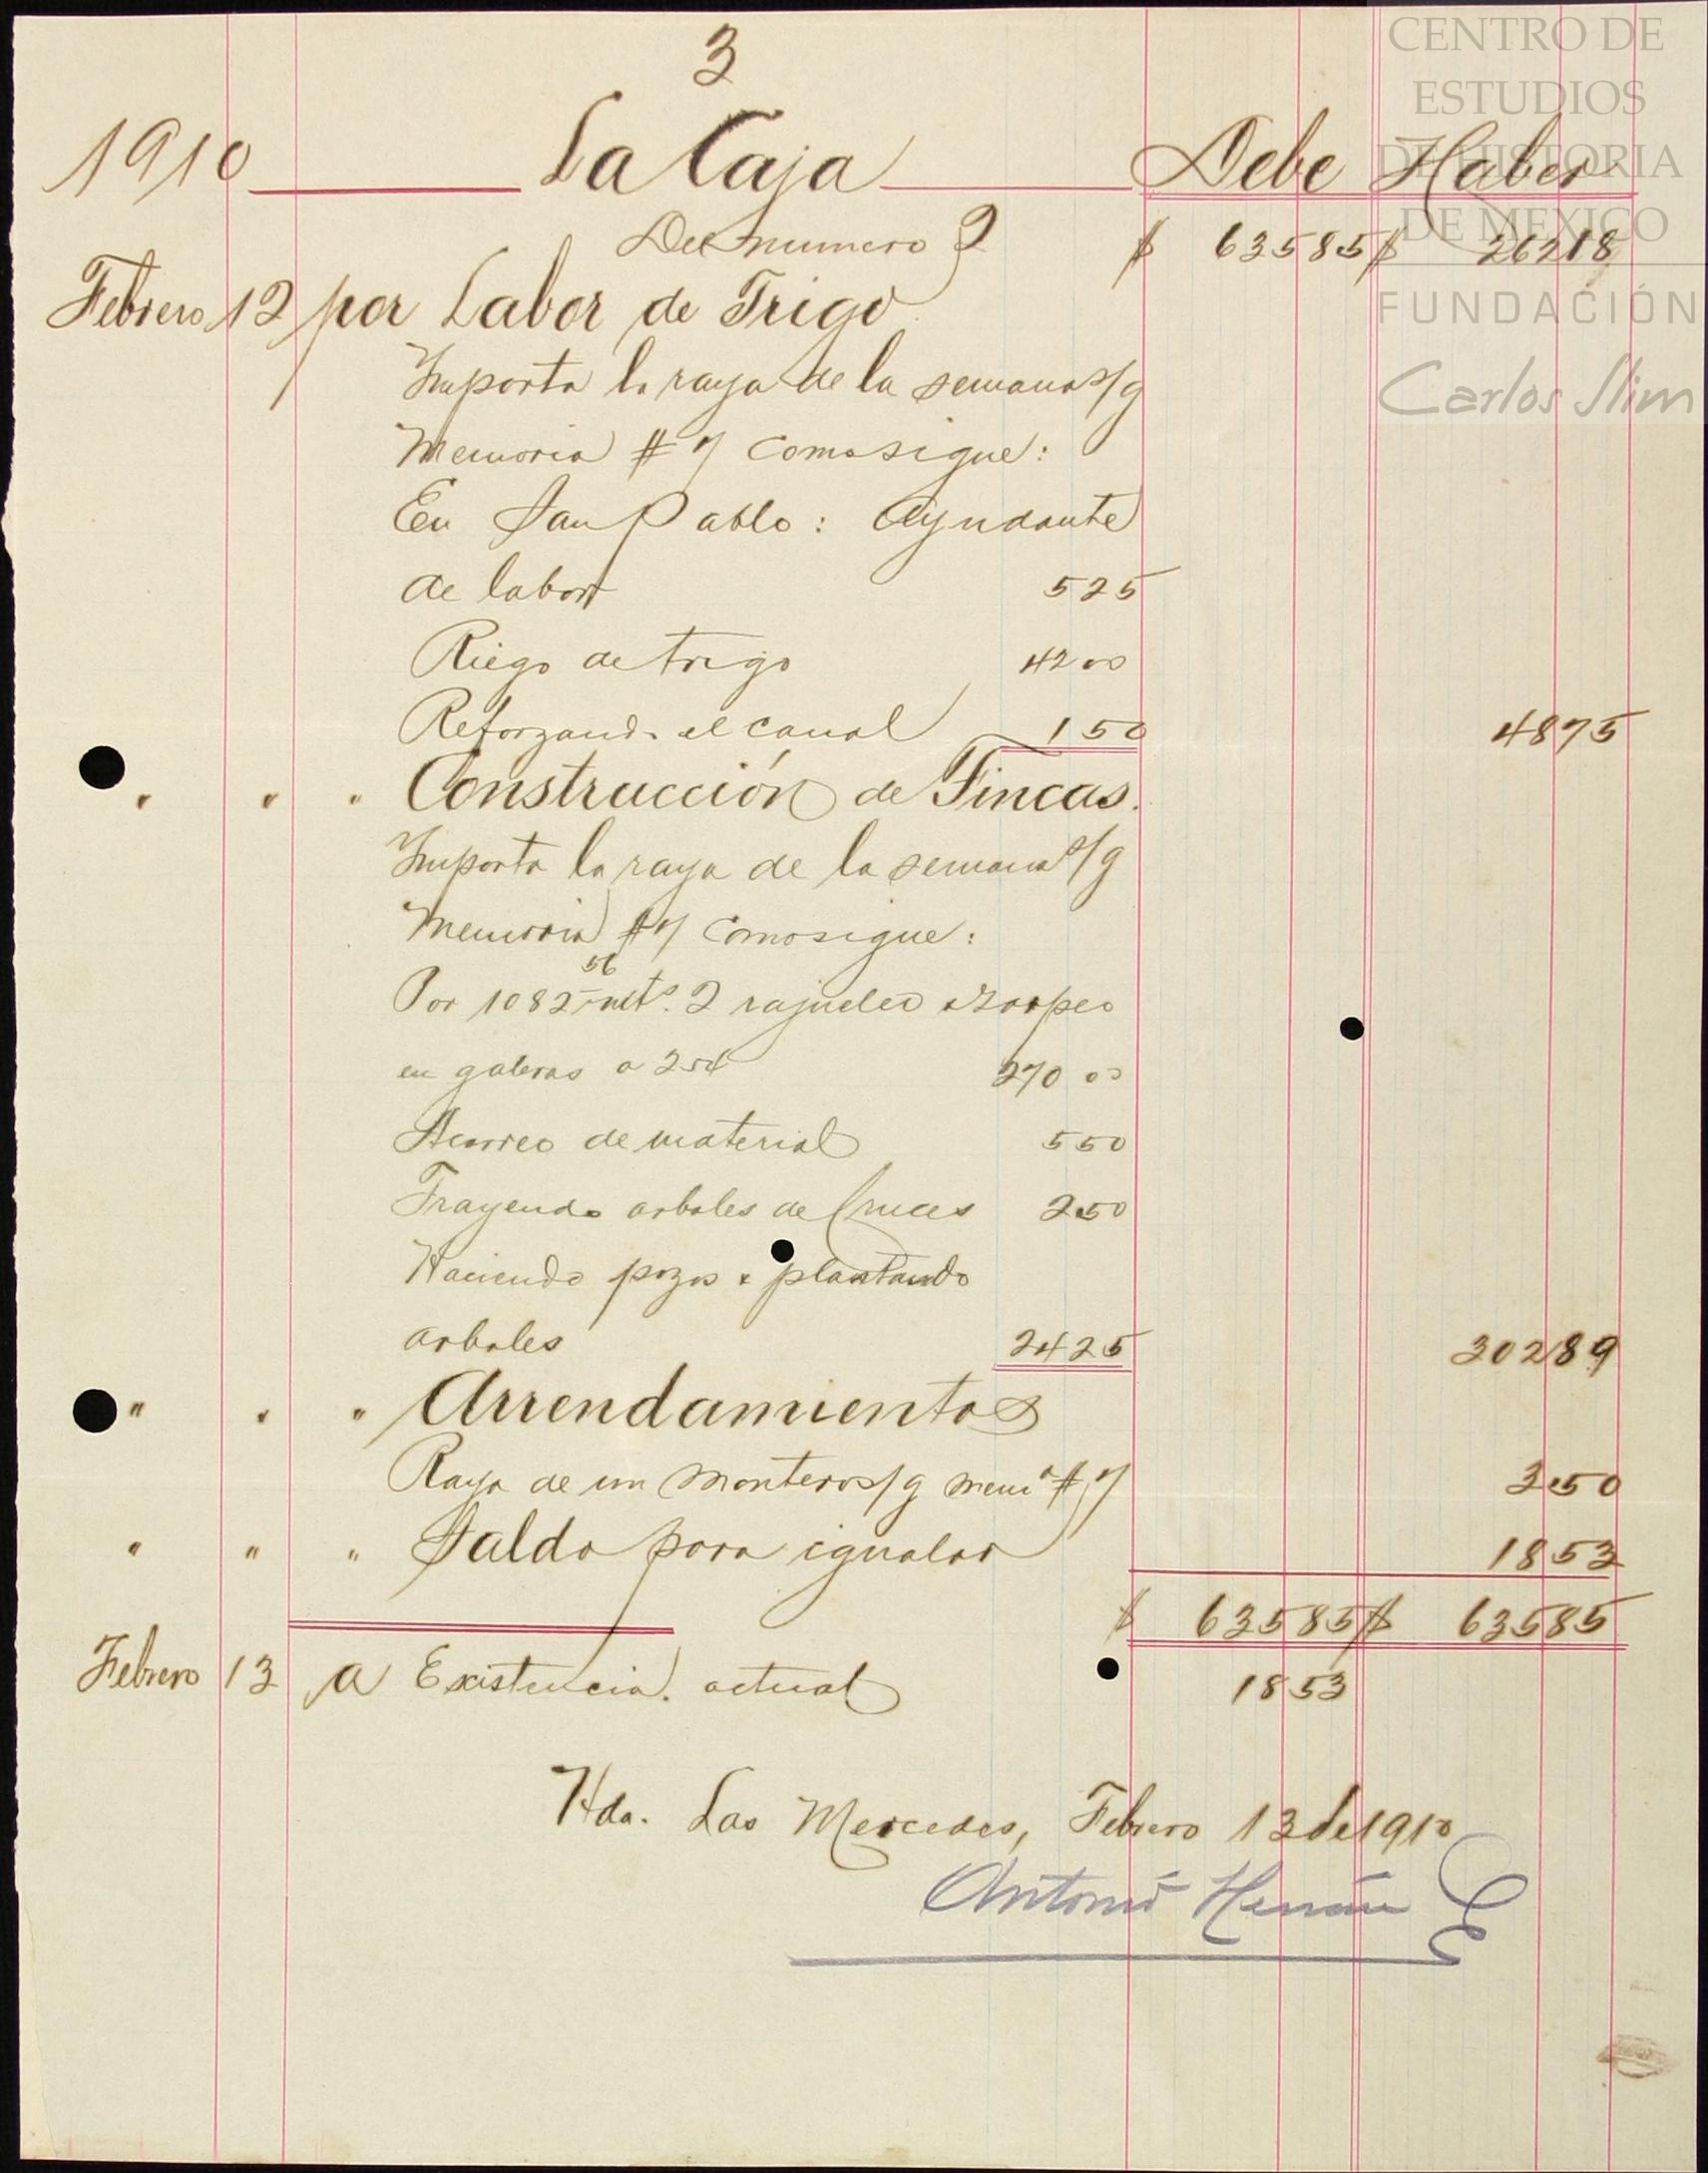 3
1910 La Caja Debe Haber
Del numero 2 $ 63585 $ 26218
Febrero 12 por Labor de Trigo
Importa la raya de la semana s/g
Memoria # 7 como sigue:
En San Pablo: Ayudante
de labor 525
Riego de trigo 4200
Reforzando el canal 150 4875
" " " Construcción de Fincas.
Importa la raya de la semana s/g
Memoria # 7 como sigue:
Por 1082 56 mts. 2 rajueleo
en galeras a 25¢ 270 00
Acarreo de material 550
Trayendo arboles de Cruces 250
Haciendo pozos y plantando
arboles 2425 30289
" " " Arrendamientos
Raya de un Montero s/g mema # 7 350
" " " Saldo para igualar 1853
$ 63585 $ 63585
Febrero 13 a Existencia actual 1853
Hda. Las Mercedes, Febrero 13 de 1910
Antonio
CENTRO DE
ESTUDIOS
DE HISTORIA
DE MEXICO
FUNDACIÓN
Carlos Slim